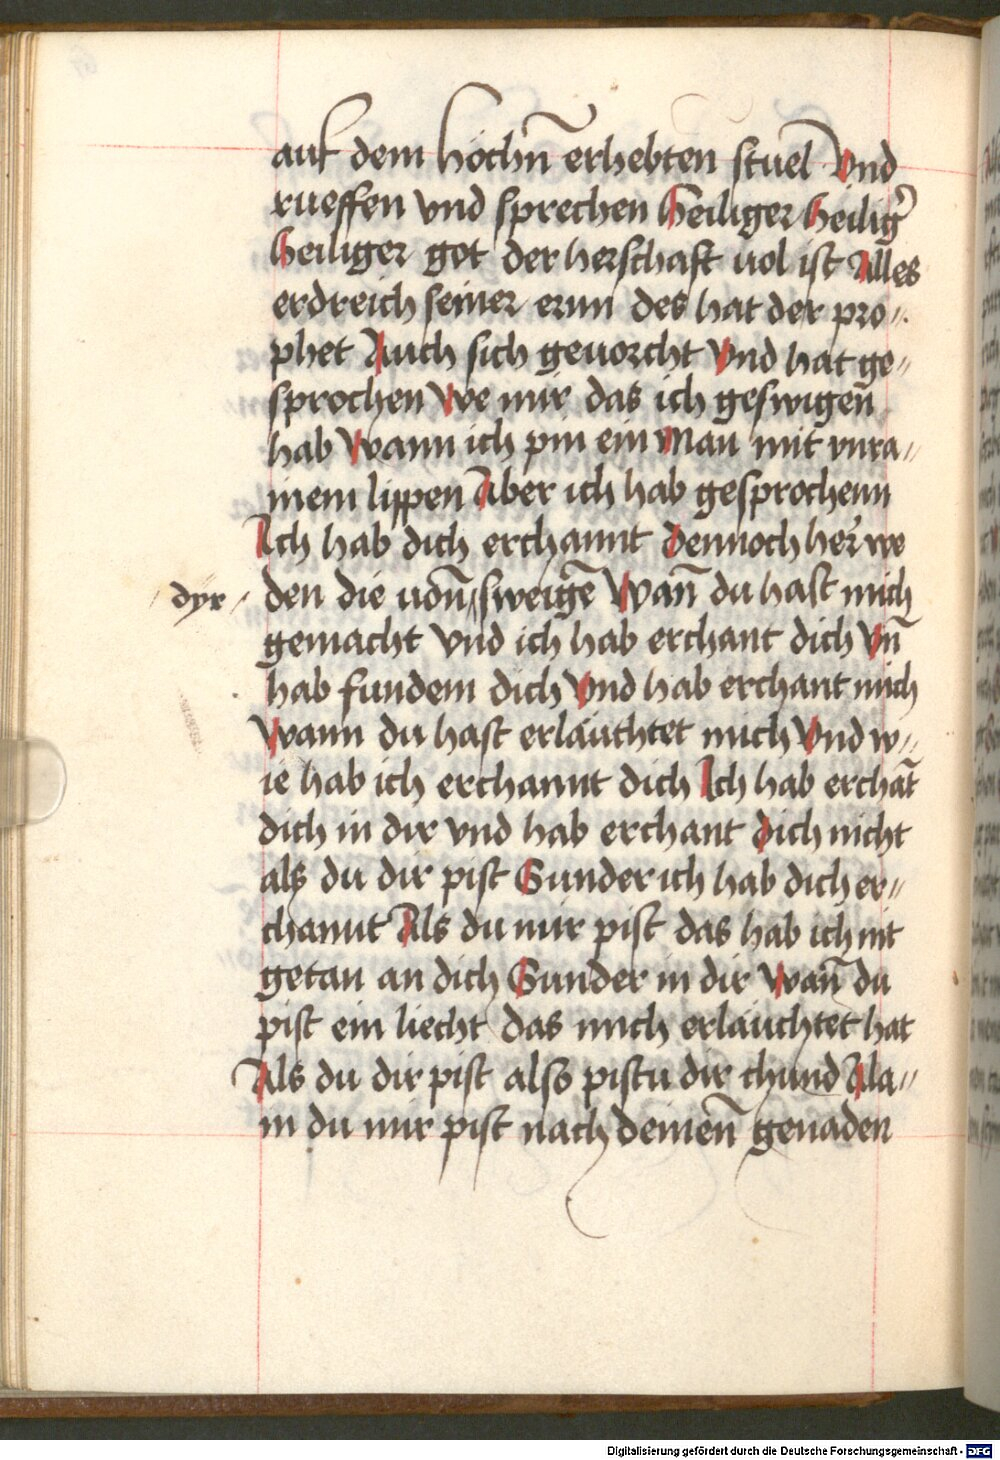 auf dem höchn̄ erhebten stuel Vnd
rueffen vnd sprechen Heiliger heilig̉
Heiliger got der herschaft uol ist Alles
erdreich seiner ernn des hat der pro〃
phet Auch sich geuorcht Vnd hat ge〃
sprochen We mir das ich geswigen̄
hab Wann ich pin ein Man̄ mit vnra〃
inem lippen Aber ich hab gesprochenn
Ich hab dich erchannt Dennoch her̉ we
dÿr
den die uon̄ sweigē Wan̄ du hast mich
gemacht Vnd ich hab erchant dich Vn̄
hab fundem dich Vnd hab erchant mich
Wann du hast erläuchtet mich Vnd w〃
ie hab ich erchannt dich Ich hab erchat̄
dich in dir vnd hab erchant dich nicht
als du dir pist Sunder ich hab dich er〃
channt Als du mir pist das hab ich nit
getan an dich Sunder in dir Wan̄ du
pist ein liecht das mich erläuchtet hat
Als du dir pist also pistu dir chund Ala〃
in du mir pist nach deinen̄ genaden
Digitalisierung gefördert durch die Deutsche Forschungsgemeinschaft - DFG